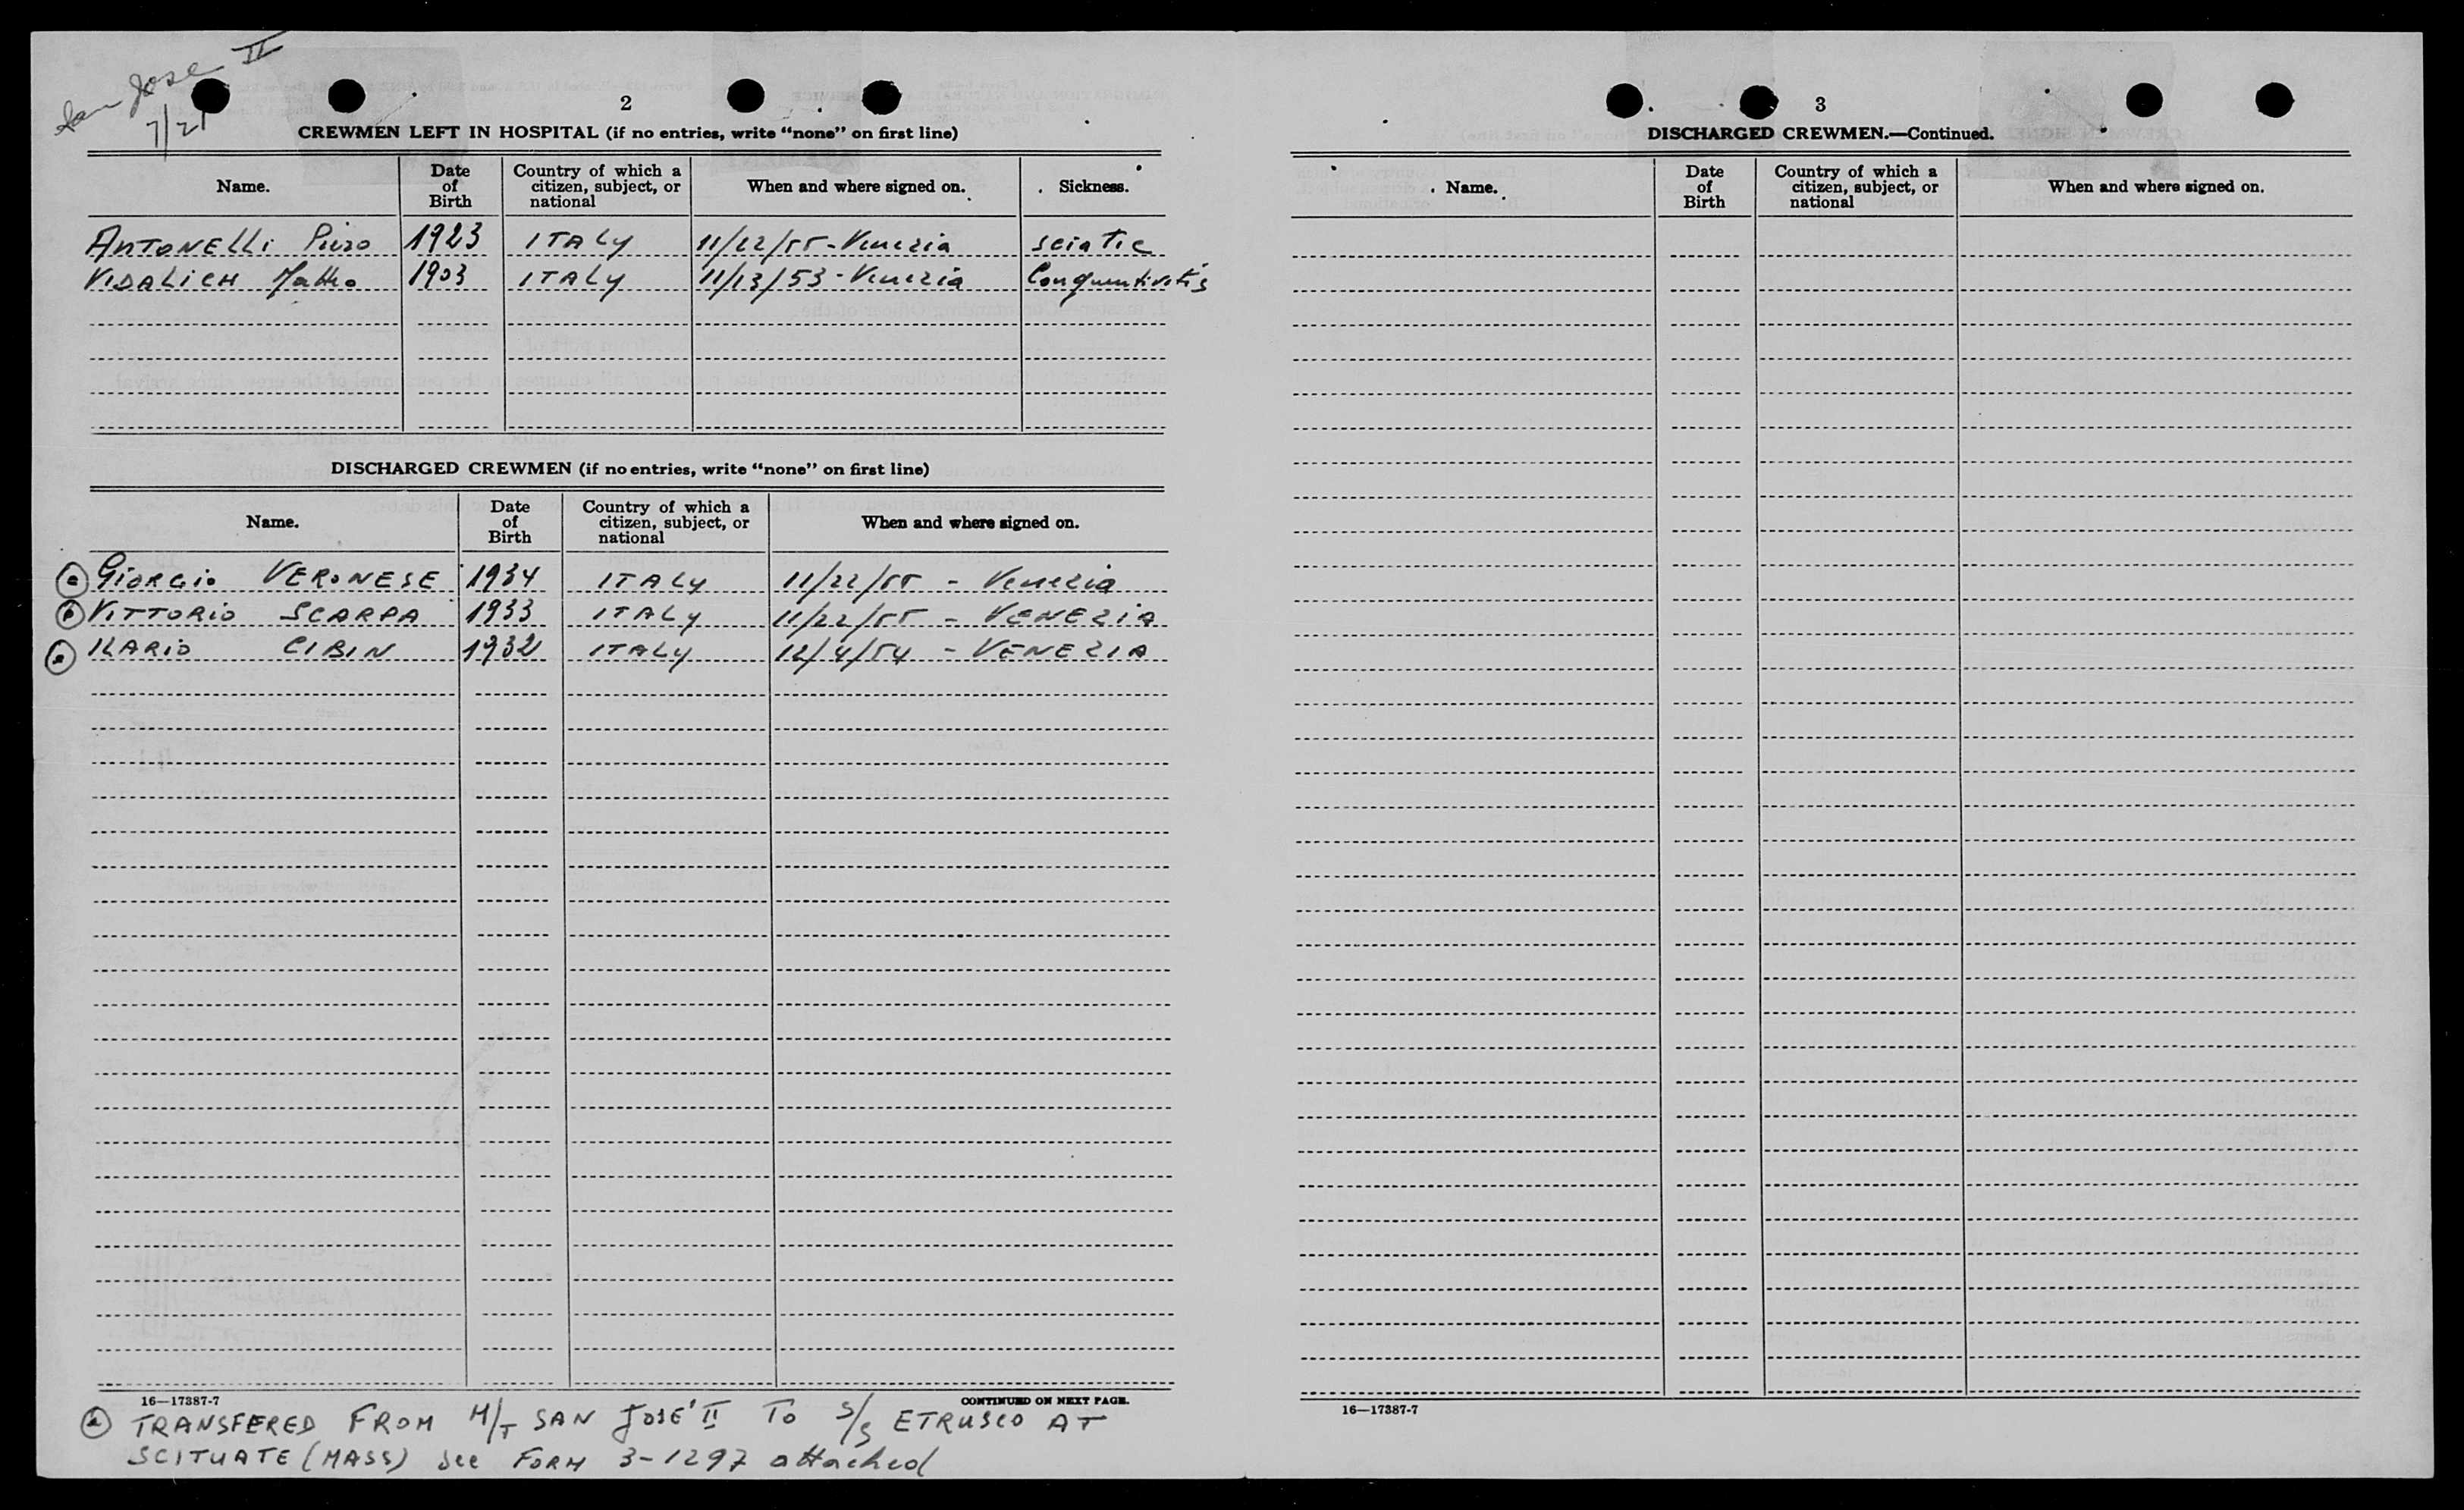 San Jose II
7/21
2
CREWMEN LEFT IN HOSPITAL (if no entries, write "none" on first line)
Name. Date of Birth Country of which a citizen, subject, or national When and where signed on. Sickness.
ANTONELLI Piero 1923 ITALY 11/22/55 - Venezia sciatic
VIDALICH Matteo 1903 ITALY 11/13/53 - Venezia
DISCHARGED CREWMEN (if no entries, write "none" on first line)
Name. Date of Birth Country of which a citizen, subject, or national When and where signed on.
GiORGio VERONESE 1934 ITALY 11/22/55 - Venezia
VITTORiO SCARPA 1933 ITALY 11/22/55 - VENEZiA
CIBIN 1932 ITALY 12/4/54 - VENEZIA
16—17387-7 CONTINUED ON NEXT PAGE.
(a) TRANSFERED FROM M/T SAN JOSE' II TO S/S ETRUSCO AT
SCITUATE (MASS) see FORM 3-1297 attached
3
DISCHARGED CREWMEN.—Continued.
Name. Date of Birth Country of which a citizen, subject, or national When and where signed on.
16—17387-7